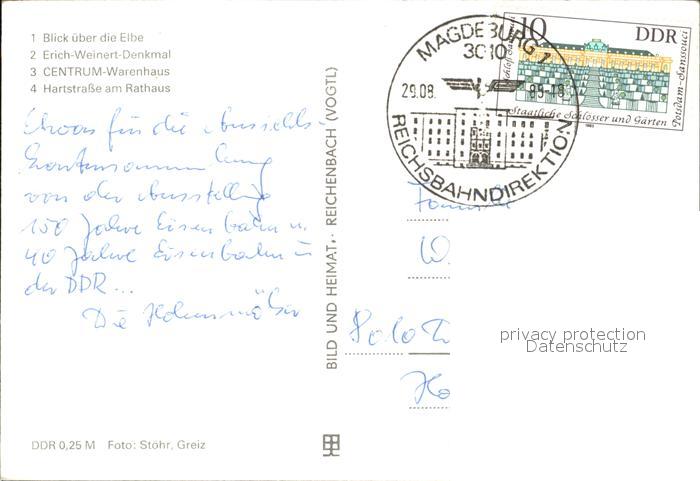 1 Blick über die Elbe
2 Erich-Weinert-Denkmal
3 CENTRUM-Warenhaus
4 Hartstraße am Rathaus
Etwas für die Ansichts-
kartensammlung
von der Ausstellung
150 Jahre Eisenbahn u.
40 Jahre Eisenbahn in
der DDR...
Die
DDR 0,25 M Foto: Stöhr, Greiz
BILD UND HEIMAT, REICHENBACH (VOGTL)
MAGDEBURG 1
3010
29.08. 89-18
REICHSBAHNDIREKTION
10 DDR
Schloß Sanssouci
Potsdam-Sanssouci
Staatliche Schlösser und Gärten
W.
privacy protection
Datenschutz